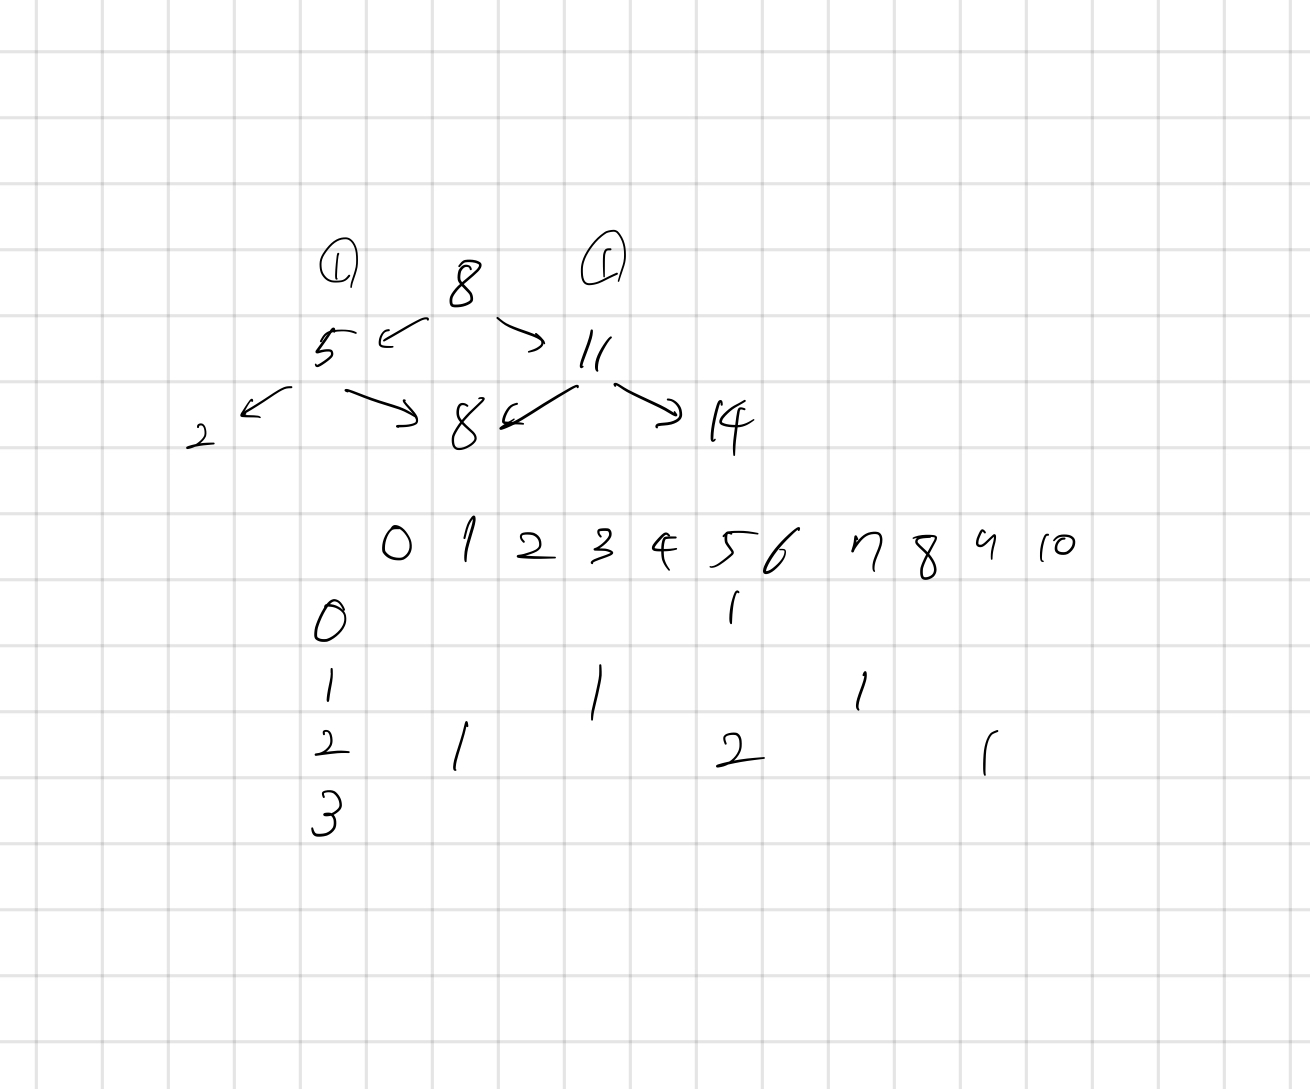 ① 8 ①
5 11
2 8 14
0 1 2 3 4 5 6 7 8 9 10
0 1
1 1 1
2 1 2 1
3